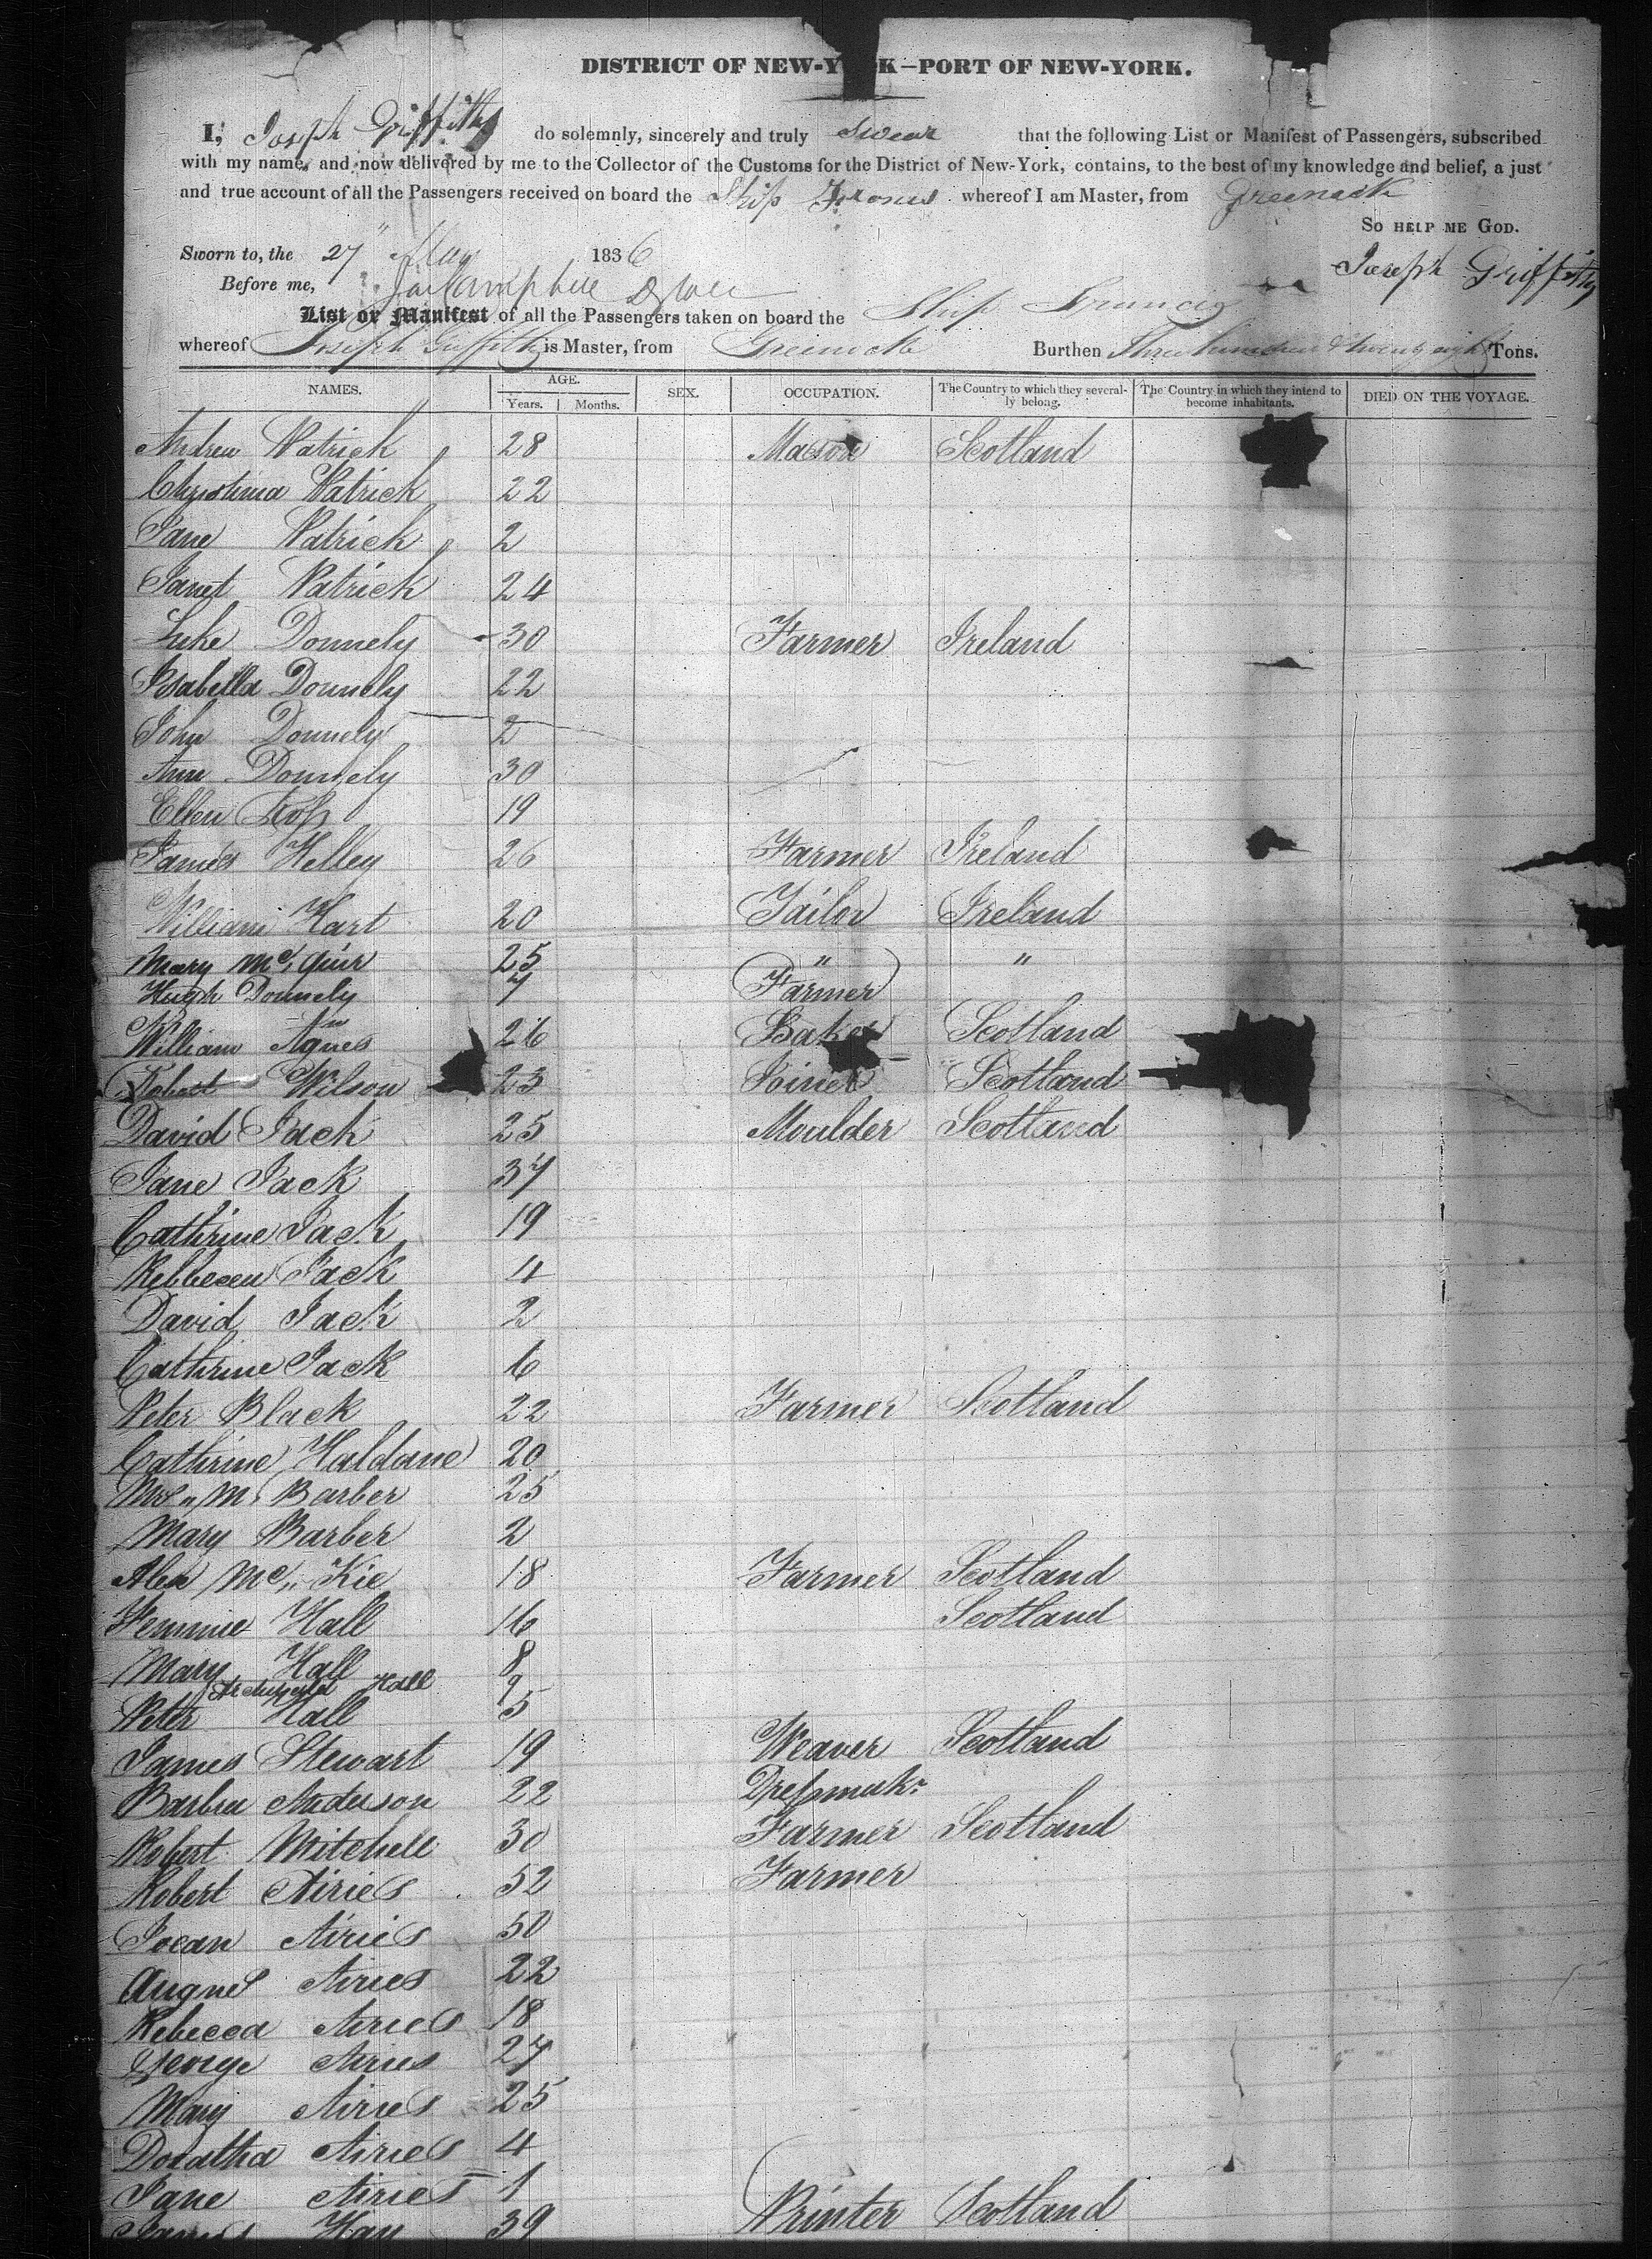 DISTRICT OF NEW-Y K—PORT OF NEW-YORK.
I, Joseph Griffiths do solemnly, sincerely and truly swear that the following List or Manifest of Passengers, subscribed
with my name, and now delivered by me to the Collector of the Customs for the District of New-York, contains, to the best of my knowledge and belief, a just
and true account of all the Passengers received on board the Ship whereof I am Master, from Greenock
SO HELP ME GOD.
Sworn to, the 27" May 1836 Joseph Griffiths
Before me,
List or Manifest of all the Passengers taken on board the Ship
whereof Joseph Griffiths is Master, from Greenock Burthen Three hundred & twenty eight Tons.
NAMES. AGE. SEX. OCCUPATION. The Country to which they severally belong. The Country in which they intend to become inhabitants. DIED ON THE VOYAGE.
Years. Months.
Andrew Patrick 28 Mason Scotland
Christina Patrick 22
Jane Patrick 2
Janet Patrick 24
Luke Donnely 30 Farmer Ireland
Isabella Donnely 22
John Donnely 2
Ann Donnely 30
Ellen 19
James Kelley 26 Farmer Ireland
William Hart 20 Tailor Ireland
Mary Mc 25 " "
Hugh Donnely 7 Farmer
William Agnew 26 Baker Scotland
Robert Wilson 23 Joiner Scotland
David Jack 25 Moulder Scotland
Jane Jack 37
Cathrine Jack 19
Rebbecca Jack 4
David Jack 2
Cathrine Jack 6
Peter Black 22 Farmer Scotland
Cathrine Haldane 20
Mrs " M Barber 25
Mary Barber 2
Alex Mc " Kie 18 Farmer Scotland
Jemmie Hall 16 Scotland
Mary Hall 8
Archibald Hall 9
Peter Hall 5
James Stewart 19 Weaver Scotland
Barbra Anderson 22 Dressmakr
Robert Mitchell 30 Farmer Scotland
Robert Airies 52 Farmer
Joean Airies 50
Augnes Airies 22
Rebecca Airies 18
George Airies 27
Mary Airies 25
Doratha Airies 4
Jane Airies 1
James Hay 39 Printer Scotland